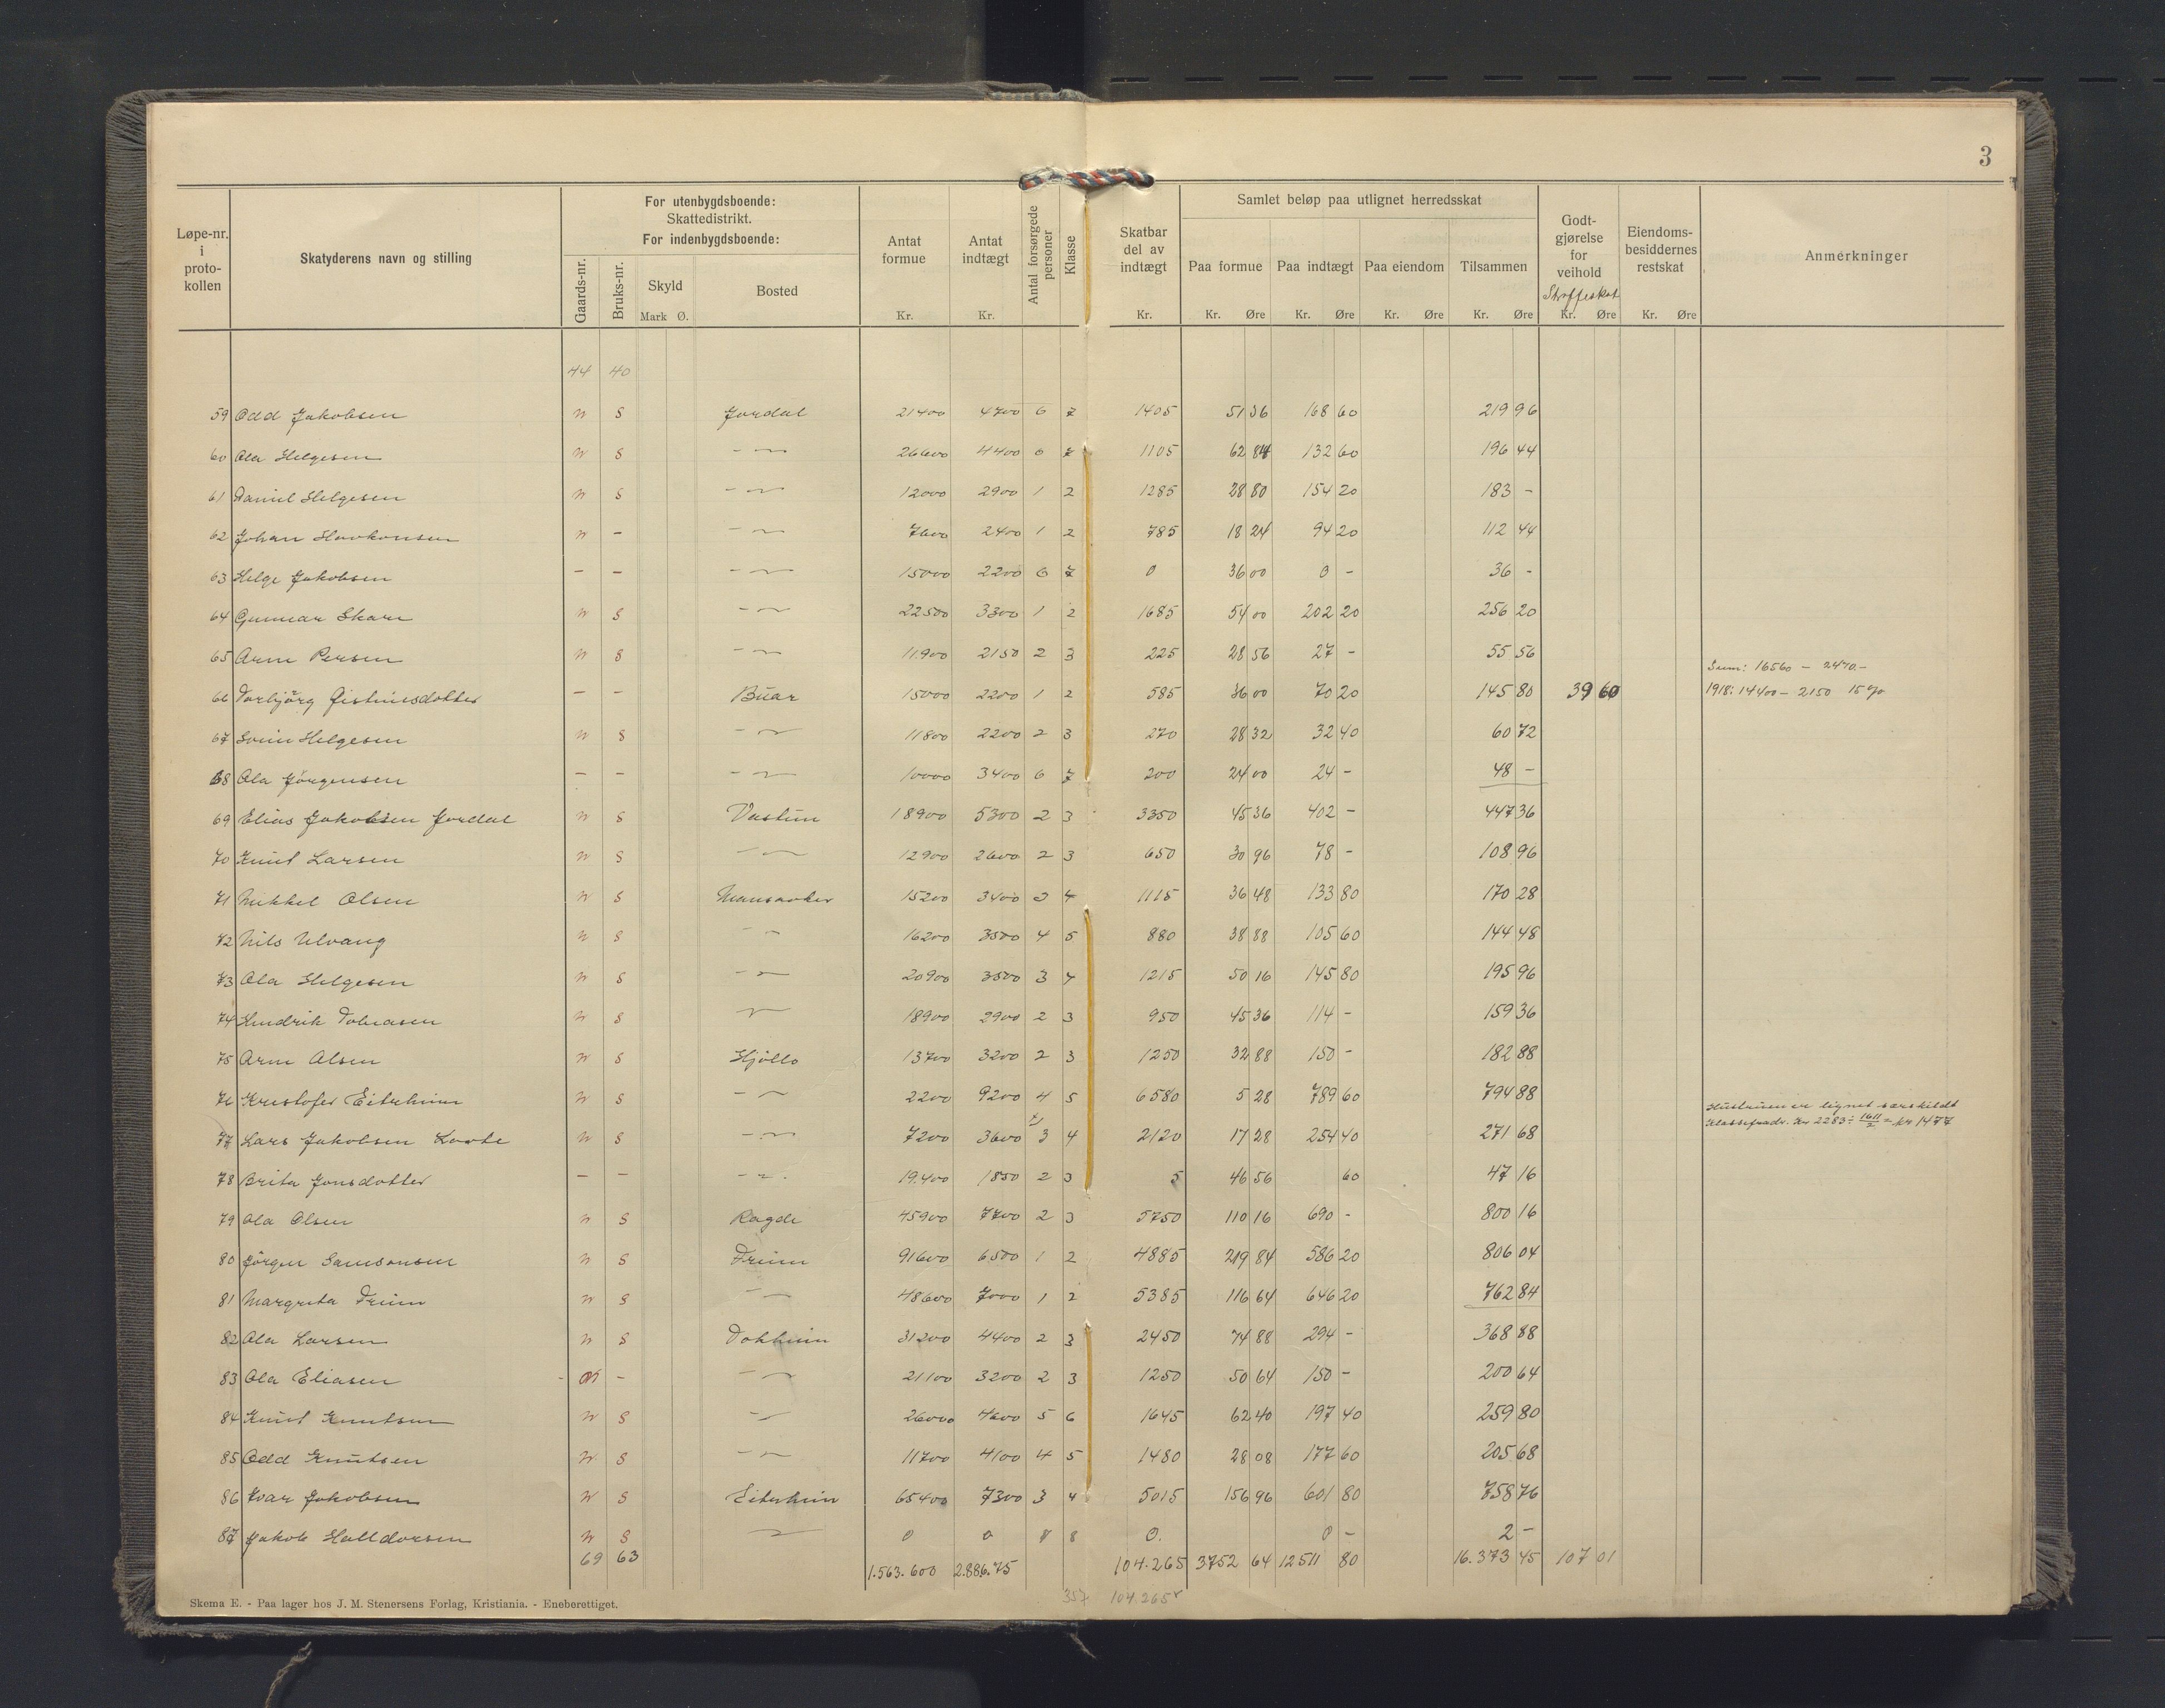 3
Løpe-nr. i proto-kollen | Skatyderens navn og stilling | For utenbygdsboende: Skattedistrikt. For indenbygdsboende: Gaards-nr. | Bruks-nr. | Skyld Mark Ø. | Bosted | Antat formue Kr. | Antat indtægt Kr. | Antal forsørgede personer | Klasse | Skatbar del av indtægt Kr. | Samlet beløp paa utlignet herredsskat | Paa formue Kr. Øre | Paa indtægt Kr. Øre | Paa eiendom Kr. Øre | Tilsammen Kr. Øre | Godt-gjørelse for veihold Straffeskat Kr. Øre | Eiendoms-besiddernes restskat Kr. Øre | Anmerkninger
44 40
59 Odd Jakobsen n s Jordal 21400 4700 6 7 1405 51 36 168 60 219 96
60 Ola Helgesen n s - 〃 - 26600 4400 6 7 1105 62 84 132 60 196 44
61 Daniel Helgesen n s - 〃 - 12000 2900 1 2 1285 28 80 154 20 183 -
62 Johan Haakonsen n - - 〃 - 7600 2400 1 2 785 18 24 94 20 112 44
63 Helge Jakobsen - - - 〃 - 15000 2200 6 7 0 36 00 0 - 36 -
64 Gunnar Skare n s - 〃 - 22500 3300 1 2 1685 54 00 202 20 256 20
65 Arne Persen n s - 〃 - 11900 2150 2 3 225 28 56 27 - 55 56
Sum: 16560 - 2470.-
66 Torbjørg Gistinesdotter - - Buar 15000 2200 1 2 585 36 00 70 20 145 80 39 60 1918: 14400 - 2150 15 %
67 Svein Helgesen n s - 〃 - 11800 2200 2 3 270 28 32 32 40 60 72
68 Ola Jørgensen - - - 〃 - 10000 3400 6 7 200 24 00 24 - 48 -
69 Elias Jakobsen Jordal n s Vastun 18900 5300 2 3 3350 45 36 402 - 447 36
70 Knut Larsen n s - 〃 - 12900 2600 2 3 650 30 96 78 - 108 96
71 Mikkel Olsen n s Mansaaker 15200 3400 3 4 1115 36 48 133 80 170 28
72 Nils Ulvang n s - 〃 16200 3500 4 5 880 38 88 105 60 144 48
73 Ola Helgesen n s - 〃 - 20900 3500 3 4 1215 50 16 145 80 195 96
74 Hendrik Tobiasen n s 〃 18900 2900 2 3 950 45 36 114 - 159 36
75 Arne Olsen n s Hjøllo 13700 3200 2 3 1250 32 88 150 - 182 88
76 Kristofer Eitrheim n s - 〃 2200 9200 4 5 6580 5 28 789 60 794 88
Hustruen er lignet særskildt
77 Lars Jakobsen Kvæte n s - 〃 - 7200 3600 3 4 2120 17 28 254 40 271 68 Klassefradr. Kr 2283 ÷ 1611/2 = kr 1477
78 Brita Jonsdotter - - - 〃 - 19.400 1850 2 3 5 46 56 60 47 16
79 Ola Olsen n s Ragde 45900 7700 2 3 5750 110 16 690 - 800 16
80 Jørgen Samsonsen n s Freim 91600 6500 1 2 4885 219 84 586 20 806 04
81 Margreta Freim n s - 〃 48600 7000 1 2 5385 116 64 646 20 762 84
82 Ola Larsen n s Tokheim 31200 4400 2 3 2450 74 88 294 - 368 88
83 Ola Eliasen - n - - 〃 21100 3200 2 3 1250 50 64 150 - 200 64
84 Knut Knutsen n s - 〃 26000 4600 5 6 1645 62 40 197 40 259 80
85 Odd Knutsen n s - 〃 11700 4100 4 5 1480 28 08 177 60 205 68
86 Ivar Jakobsen n s Eitrheim 65400 7300 3 4 5015 156 96 601 80 758 76
87 Jakob Halldorsen n s 〃 0 0 8 8 0. 0 - 2 -
69 63 1.563.600 2.886.75 104.265 3752 64 12511 80 16.373 45 107 01
357 104.265
Skema E. - Paa lager hos J. M. Stenersens Forlag, Kristiania. - Eneberettiget.